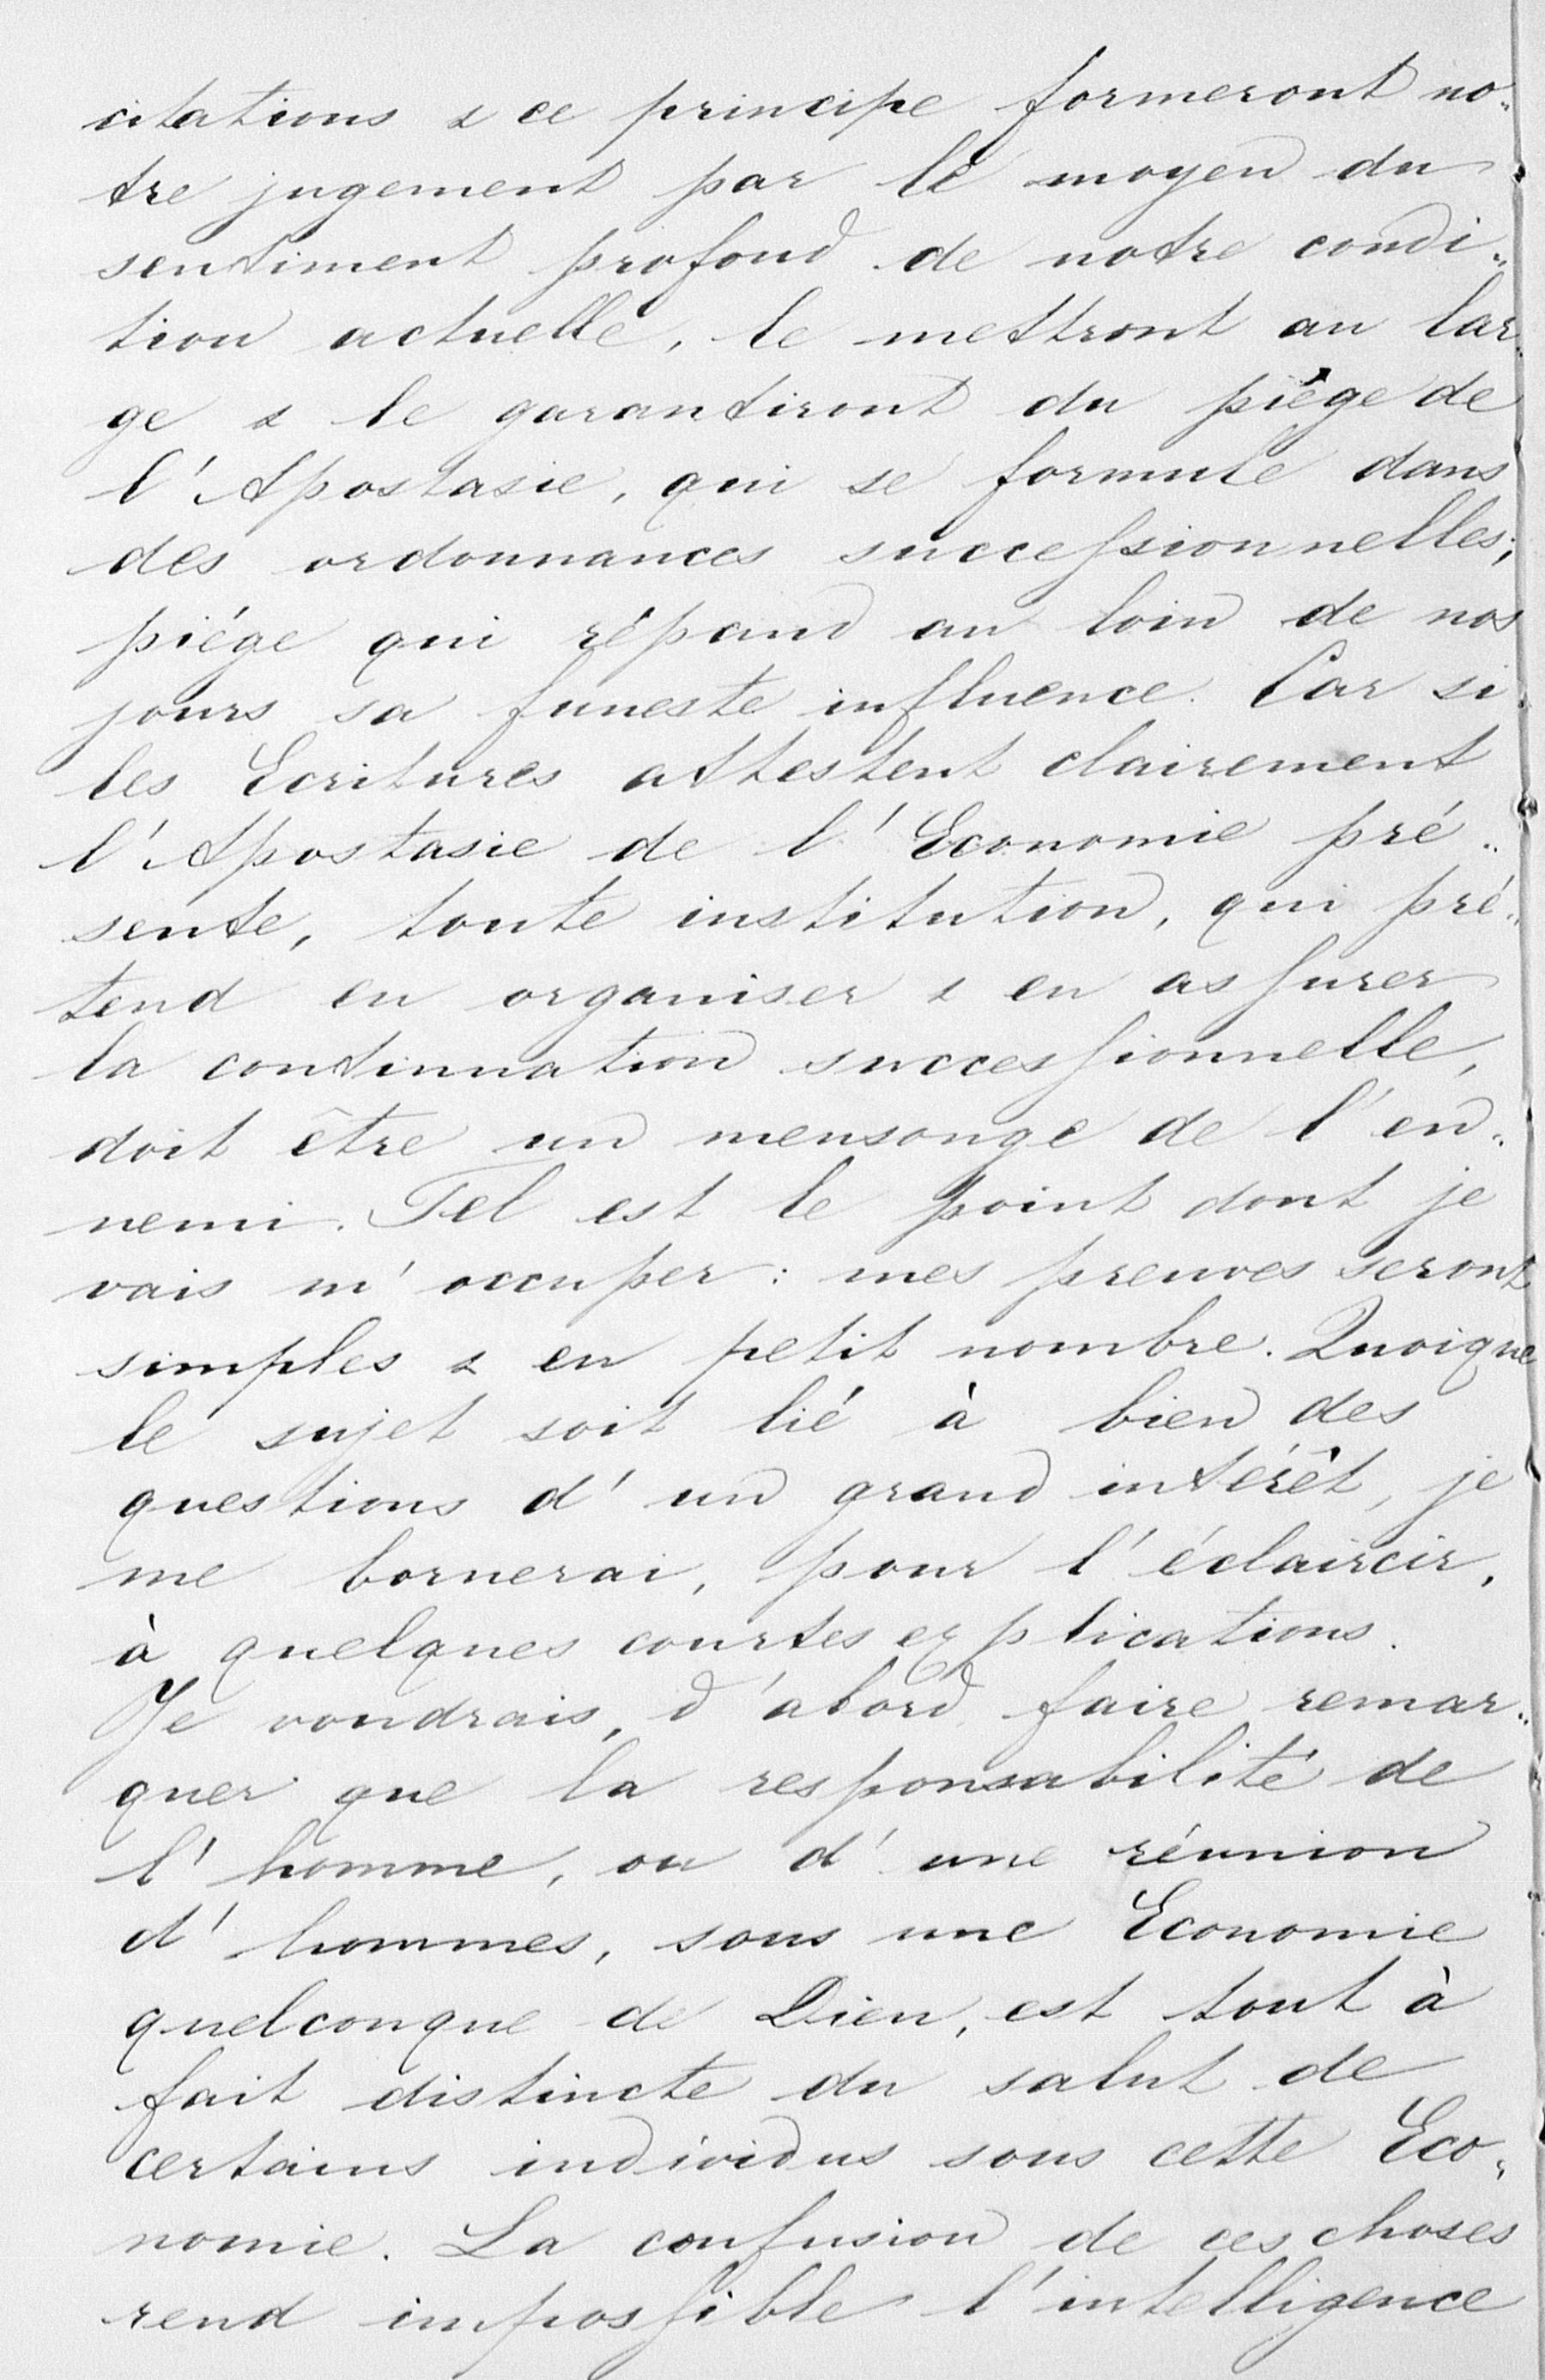 citations & ce principe formeront no-
tre jugement par le moyen du
sentiment profond de notre condi-
tion actuelle, le mettront au lar-
ge & le garantiront du piège de
l'Apostasie, qui se formule dans
des ordonnances successionnelles;
piége qui répand au loin de nos
jours sa funeste influence. Car si
les Ecritures attestent clairement
l'Apostasie de l'Economie pré-
sente, toute institution, qui pré-
tend en organiser & en assurer
la continuation successionnelle,
doit être un mensonge de l'en-
nemi. Tel est le point dont je
vais m'occuper: mes preuves seront
simples & en petit nombre. Quoique
le sujet soit lié à bien des
questions d'un grand intérêt, je
me bornerai, pour l'éclaircir,
à quelques courtes explications.
Je voudrais, d'abord faire remar-
quer que la responsabilité de
l'homme, ou d'une réunion
d'hommes, sous une Economie
quelconque de Dieu, est tout à
fait distincte du salut de
certains individus sous cette Eco-
nomie. La confusion de ces choses
rend impossible l'intelligence